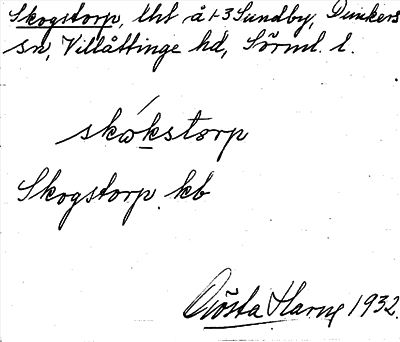 Skogstorp, lht å 1-3 Sundby, Dunkers
sn, Villåttinge hd, Sörml. l.
skókstorp
Skogstorp kb
Gösta Harne 1932.